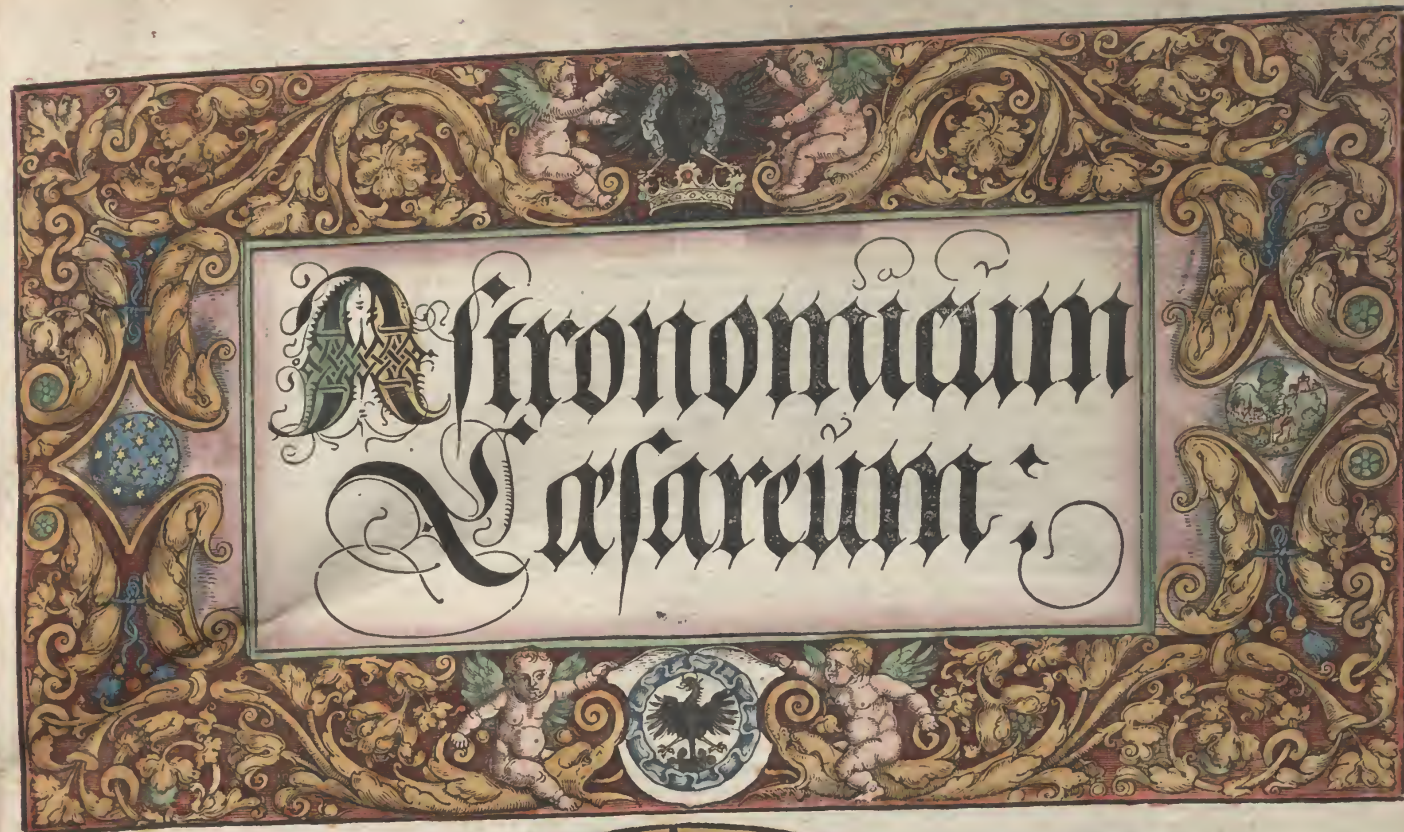 Aſtronomicum
Cæſareum: